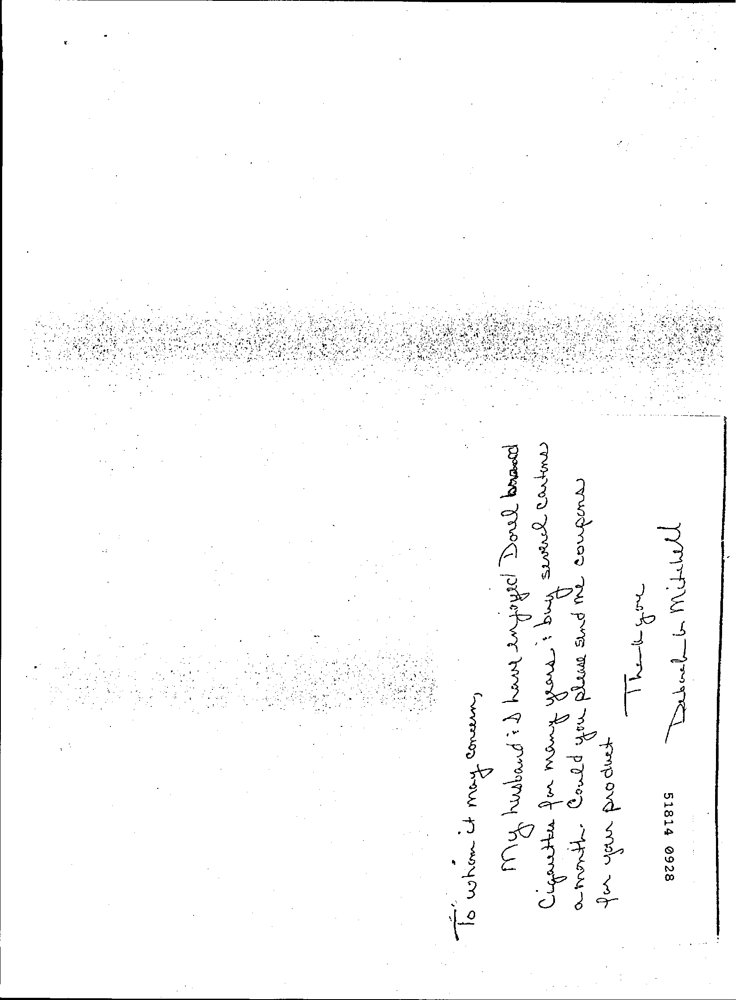 To whom it may concern,
My husband & I have enjoyed Doral brand
Cigarettes for many years & buy several cartons
a month. Could you please send me coupons
for your product
Thank you
Deborah L Mitchell
51814 0928